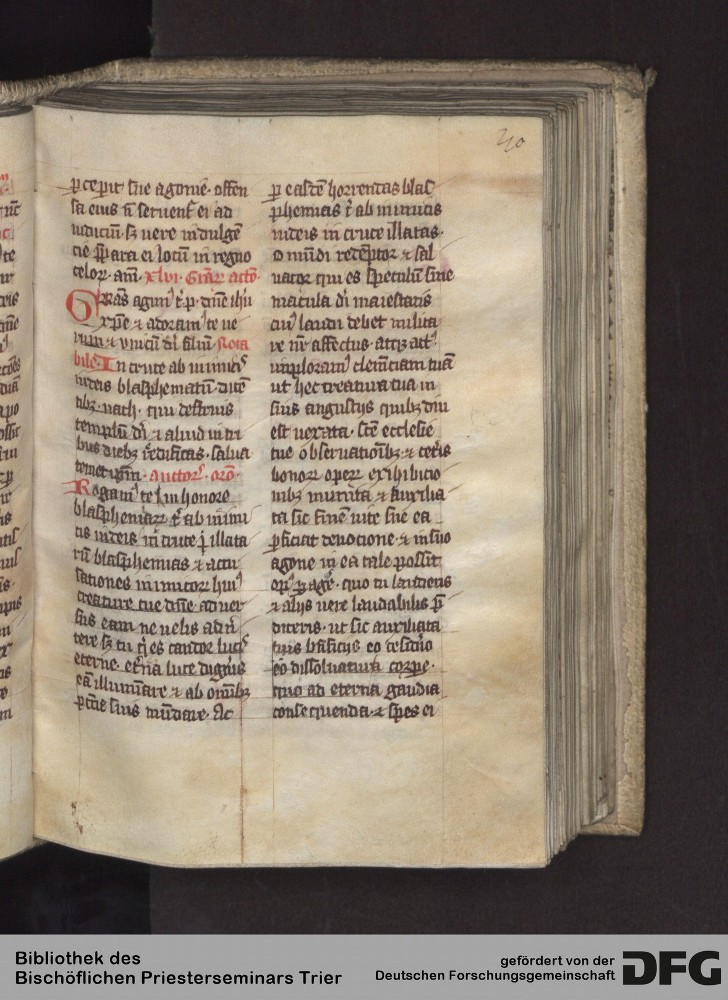 40
p̄cepit sue agonie · offen
sa eius n̄ seruent͛ ei ad
iudiciū · sꝫ uere indulgē
cie p̄para ei locū in regno
celoꝝ · am̄ · xlvi · Gr̄aꝝ actō ·
Gr̄as agim⁹ t͛ · dn̄e ih̄u
xp̄e ⁊ adoram⁹ te ue
rum ⁊ vnicū di filiū · Nota
bile · In cruce ab inimic͛
iudeis blasphematū · dicē
tibꝫ · uach · qui destruis
templū di ⁊ aliud in tri
bus diebꝫ reedificas · salua
temet ip̄m · auctor͛ · orō ·
Rogam⁹ te in honore
blasphemiaꝝ t͛ ab inimi
cis iudeis in cruce illata
rū blasphemias ⁊ accu
sationes inimicoꝝ hui⁹
creature tue dn̄e · aduer
sus eam ne uelis admi
tere sꝫ tu q͛ es candor luc͛
eterne · et͛na luce digneris
eā illumīare ⁊ ab om̄ibꝫ
pcc̄is suis mūdare · Ac
p easdē horrendas blas
phemias t͛ ab inimicis
iudeis in cruce illatas ·
O mūdi redēptor ⁊ sal
uator qui es speculū sine
macula di maiestatis
cui⁹ laudi debet milita
re nr̄ affectus · atqꝫ act⁹
imploram⁹ clemēciam tuā
ut hec creatura tua in
suis angustijs quibꝫ diu
est uexata · sc̄e ecclesie
tue obseruationibꝫ ⁊ cet͛is
bonoꝝ operū exibicio
nibꝫ munita ⁊ auxilia
ta sic finē uite sue ea
p̄ficiat deuotione · ⁊ in suo
agone in ea tale possit
op⁹ pagē · quo tu laudens
⁊ alijs uere laudabilis p̄
diceris · ut sic auxiliata
tuis bn̄ficijs eo
eo dissoluatur corpe ·
quo ad eterna gaudia
consequenda · ⁊ spes ei
Bibliothek des
Bischöflichen Priesterseminars Trier
gefördert von der
Deutschen Forschungsgemeinschaft
DFG